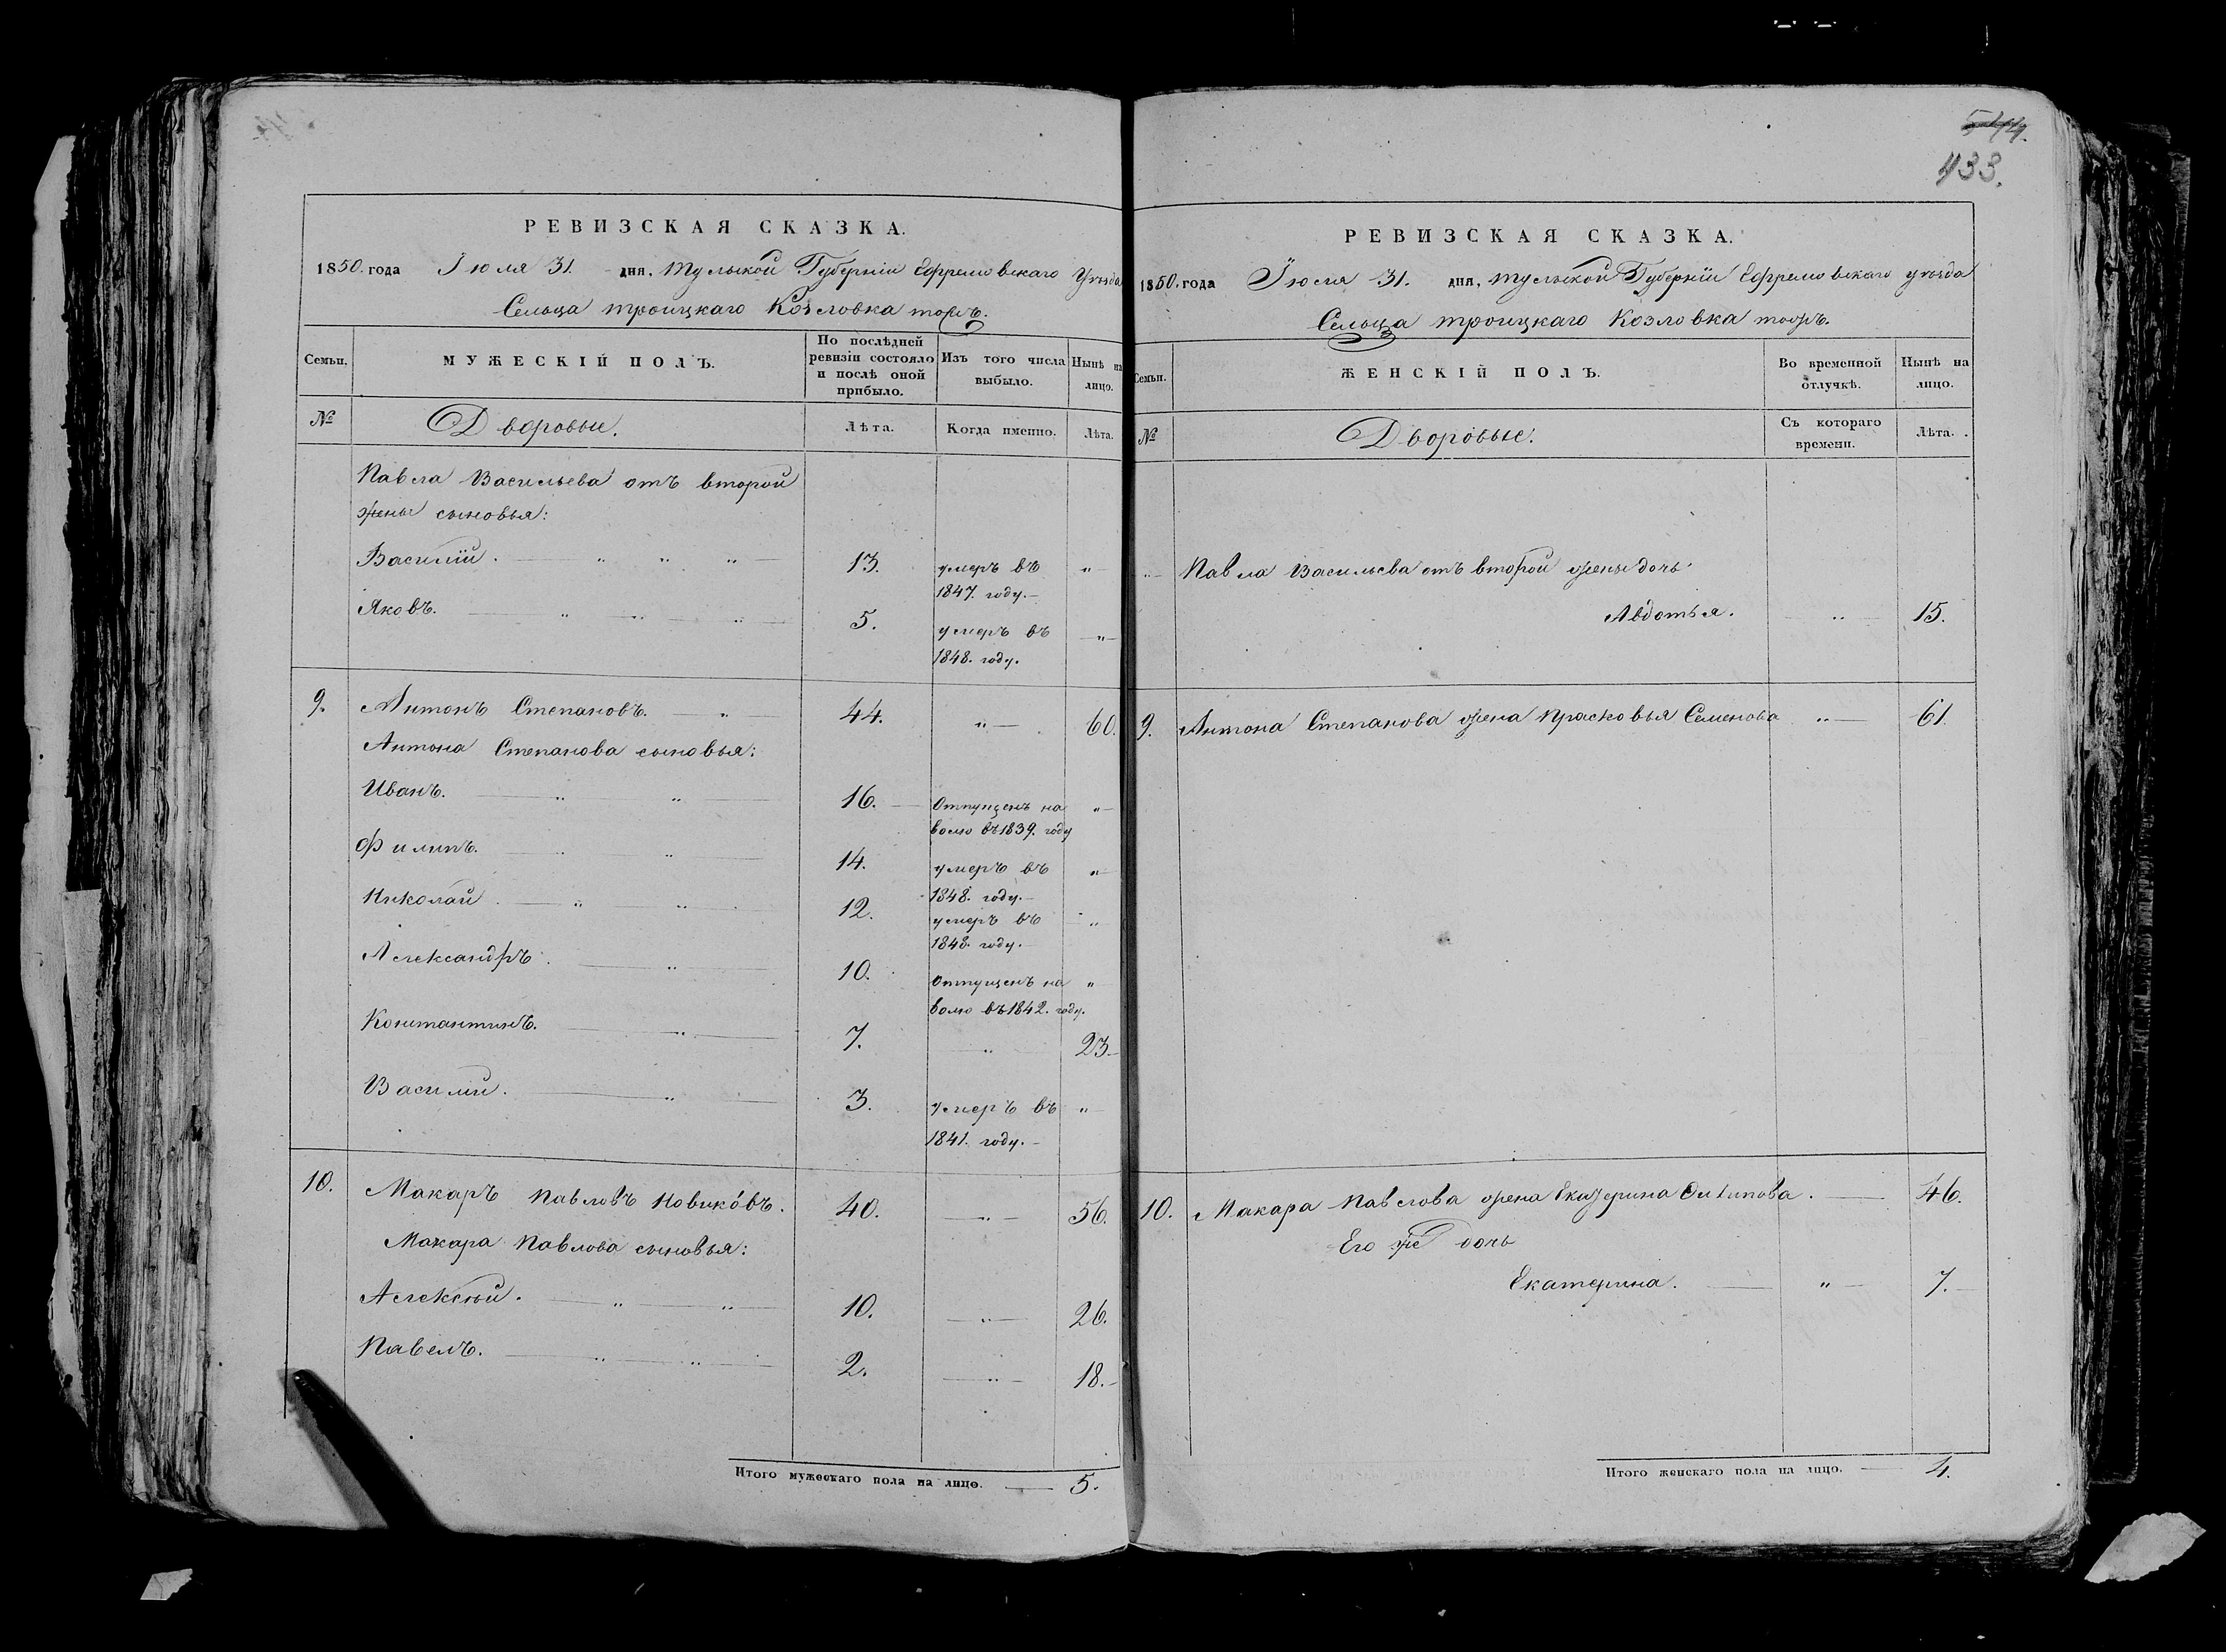 РЕВИЗСКАЯ СКАЗКА.
1850. года Іюля 31. дня, Тульской Губерніи Ефремовскаго Уѣзда
Сельца Троицкаго Козловка тожъ.
Семьи.
МУЖЕСКІЙ ПОЛЪ.
По послѣдней
ревизіи состояло
и послѣ оной
прибыло.
Изъ того числа
выбыло.
Нынѣ на
лицо.
№
Дворовые.
Лѣта.
Когда именно.
Лѣта.
Павла Васильева отъ второй
жены сыновья:
Василій. 13. умеръ въ
1847. году.
Яковъ. 5. умеръ въ
1848. году.
9. Антонъ Степановъ. 44. 60.
Антона Степанова сыновья:
Иванъ. 16. Отпущенъ на
волю въ 1839. году
Филипъ. 14. умеръ въ
1848. году.
Николай. 12. умеръ въ
1848. году.
Александръ. 10. Отпущенъ на
волю въ 1842. году.
Константинъ. 7. 23.
Василий. 3. умеръ въ
1841. году.
10. Макаръ Павловъ Новиковъ. 40. 56.
Макара Павлова сыновья:
Алексѣй. 10. 26.
Павелъ. 2. 18.
Итого мужескаго пола на лицо. 5.
433.
РЕВИЗСКАЯ СКАЗКА.
1850. года Іюля 31. дня, Тульской Губерніи Ефремовскаго уѣзда
Сельца Троицкаго Козловка тожъ.
Семьи.
ЖЕНСКІЙ ПОЛЪ.
Во временной
отлучкѣ.
Нынѣ на
лицо.
№
Дворовые.
Съ котораго
времени.
Лѣта.
Павла Васильева отъ второй жены дочь
Авдотья. 15.
9. Антона Степанова жена Прасковья Семенова 61.
10. Макара Павлова жена Екатерина 46.
Его же дочь
Екатерина. 7.
Итого женскаго пола на лицо. 4.